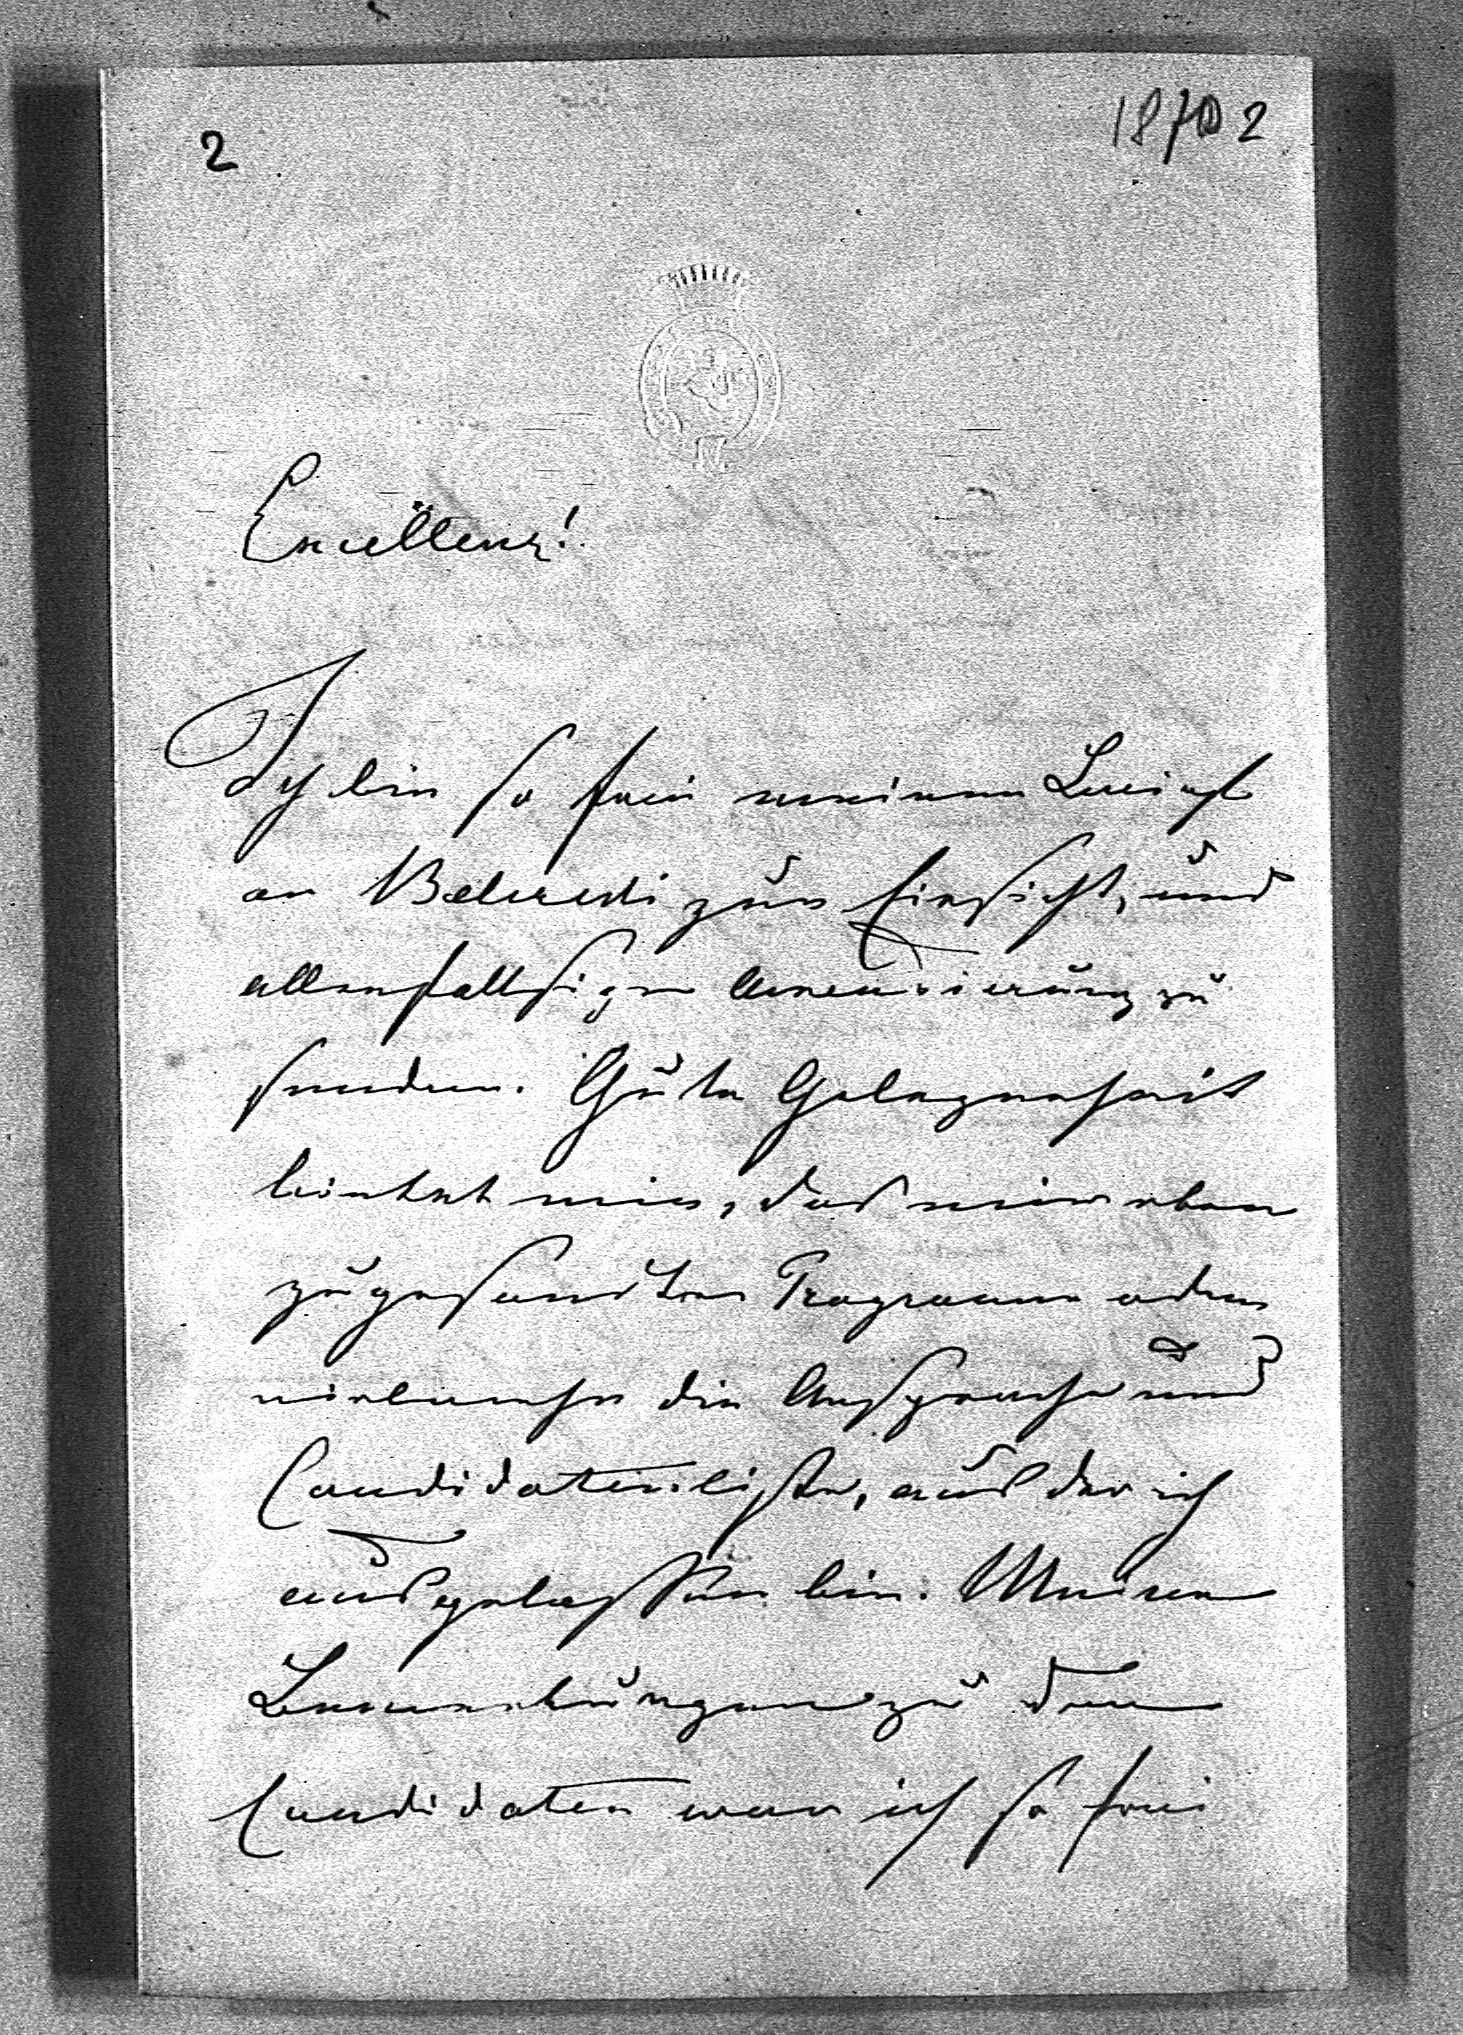 2
1870 2
Excellenz!
Ich bin so frei meinen Brief
an Belcredi zur Einsicht, und
allenfallsigen Amendierung zu
senden. Gute Gelegenheit
bietet mir, das mir eben
zugesandte Programm oder
vielmehr die Ansprache und
Candidatenliste, aus der ich
ausgelassen bin. Meine
Bemerkungen zu den
Candidaten war ich so frei